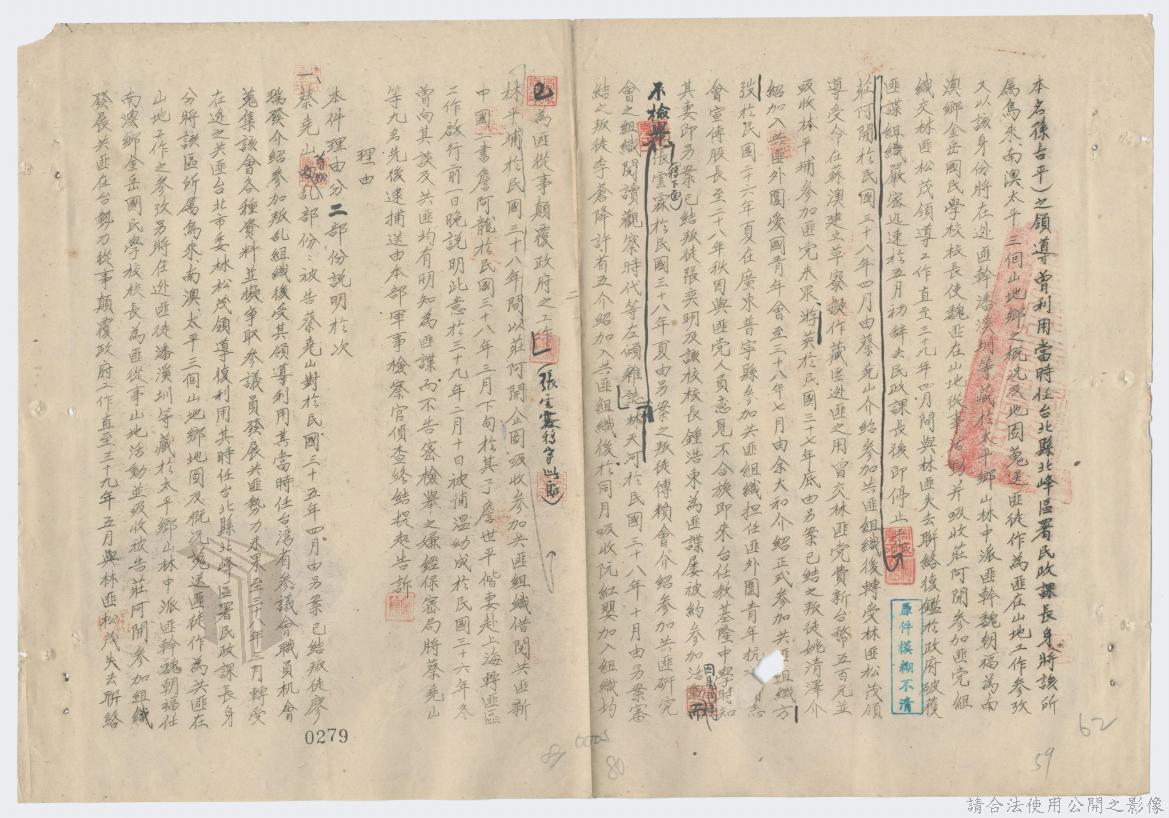 本名孫古平)之領導曾利用當時任台北縣北峰區署民政課長身將該所
屬烏來、南澳太平三個山地鄉之概況及地圖蒐送匪徒作為匪在山地工作參攷
又以該身份將在逃匪幹潘溪圳等藏於太平鄉山林中派匪幹魏朝福為南
澳鄉金岳國民學校校長使魏匪在山地從事活動并吸收莊阿開參加匪党組
織交林匪松茂領導工作直至三十九年四月間與林匪失去聯絡後鑑於政府破獲
匪諜組織嚴密迅速於五月初辞去民政課長後即停止
莊阿開於民國三十八年四月由蔡堯山介紹參加共匪組織後轉受林匪松茂領
導受令在蘇澳建立草寮擬作藏匿逃匪之用曾交林匪党費新台幣五百元並
吸收林平埔參加匪党未果游英於民國三十七年底由另案已結之叛徒姚清澤介
紹加入共匪外圍愛國青年會至三十八年七月由余大和介紹正式參加共匪組織方
弢於民國二十六年夏在廣東普寧縣參加共匪組織担任匪外圍青年抗
會宣傳股長至二十八年秋因與匪党人員意見不合旋即來台任教基隆中學時知
其妻即另案已結叛徒張奕明及該校校長鍾浩東為匪諜屡被約參加活動而
不檢舉張雲霞於民國三十八年夏由另案之叛徒傅賴會介紹參加共匪研究
會之組織閱讀觀察時代等左傾雜誌林天河於民國三十八年十月由另案審
結之叛徒李蒼降許有五介紹加入共匪組織後於同月吸收阮紅嬰加入組織均
已為匪從事顛覆政府之工作(張雲霞移字此處)
林平埔於民國三十八年間以莊阿開企圖吸收參加共匪組織借閱共匪新
中國書詹阿龍於民國三十八年三月下旬於其子詹世平偕妻赴上海轉匪區
工作啟行前一日晚說明此意於三十九年二月十日被捕溫幼成於民國三十六年冬
曾向其談及共匪均有明知為匪諜而不告密檢舉之嫌經保密局將蔡堯山
等九名先後逮捕送由本部軍事檢察官偵查終結提起公訴
理由
本件理由分二部份說明於次
一、蔡堯山部份:被告蔡堯山對於民國三十五年四月由另案已結叛徒廖
瑞發介紹參加叛乱組織後受其領導利用其當時任台湾省參議會職員机會
蒐集該會各種資料並擬爭取參議員發展共匪勢力未果至三十八年三月轉受
在逃之共匪台北市委林松茂領導復利用其時任台北縣北峰區署民政課長身
分將該區所屬烏來、南澳、太平三個山地鄉地圖及概况蒐送匪徒作為共匪在
山地工作之參攷另將在逃匪徒潘溪圳等藏於太平鄉山林中派匪幹魏朝福任
南澳鄉金岳國民學校校長為匪從事山地活動並吸收被告莊阿開參加組織
發展共匪在台勢力從事顛覆政府工作直至三十九年五月與林匪松茂失去聯給
原件模糊不清
0279
62
59
80
81
請合法使用公開之影像